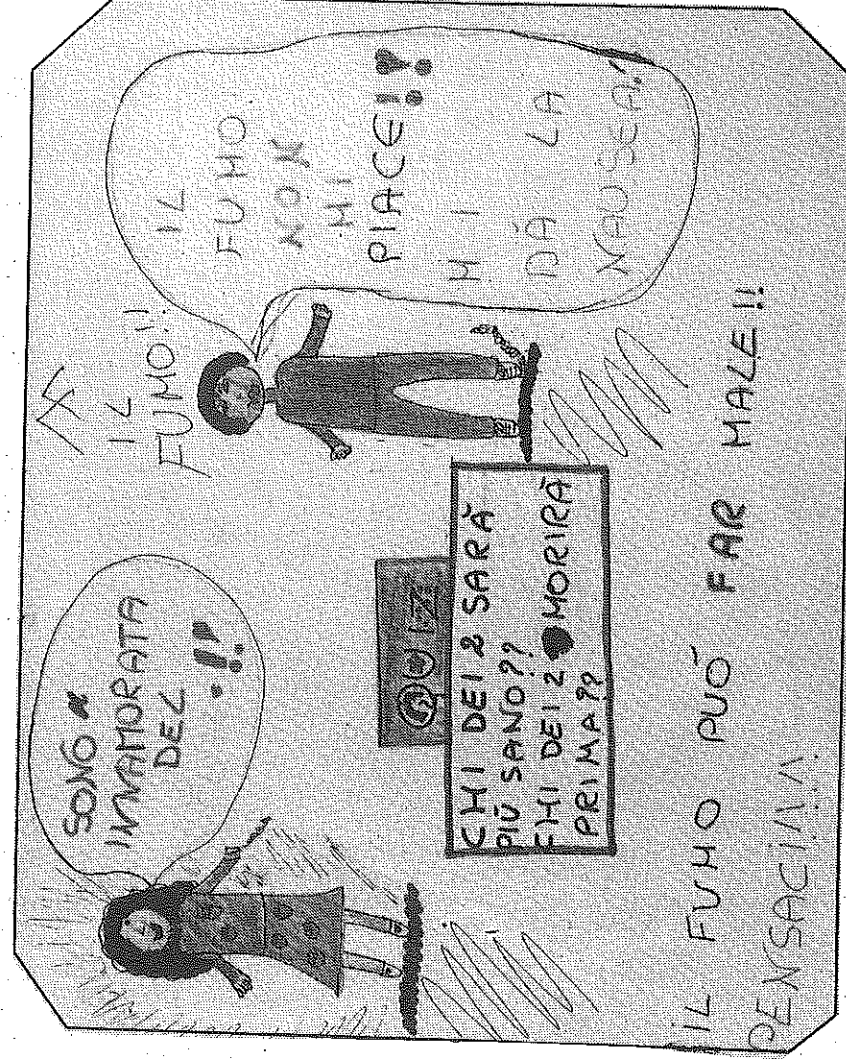 SONO
INNAMORATA
DEL
!!
IL
FUMO!!
IL
FUMO
NON
MI
PIACE!!
MI
DÀ LA
NAUSEA!
QUIZ
CHI DEI 2 SARÀ
PIÙ SANO??
CHI DEI 2 MORIRÀ
PRIMA??
IL FUMO PUÒ FAR MALE!!
PENSACI!!